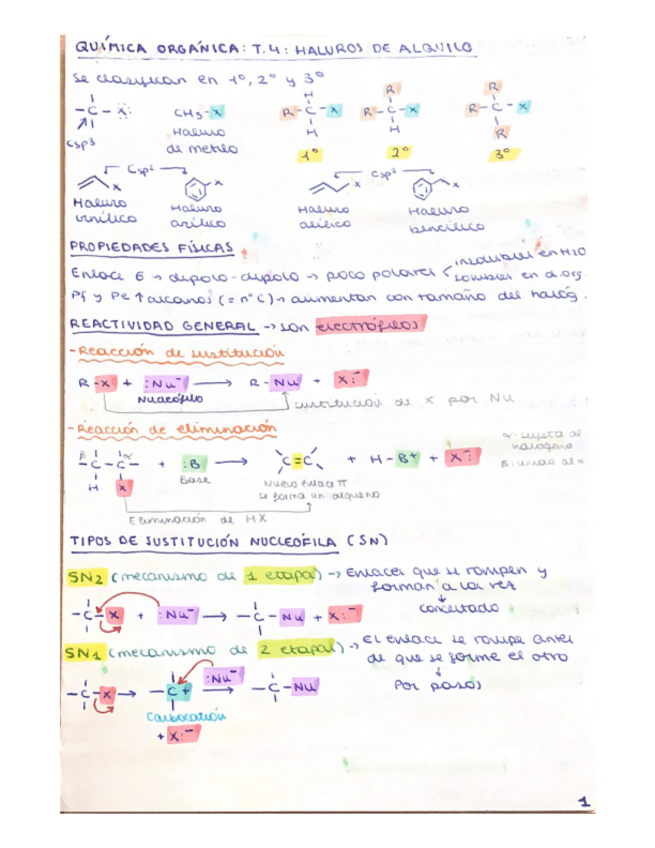 QUÍMICA ORGÁNICA: T.4: HALUROS DE ALQUILO
Se clasifican en 1º, 2º y 3º
-C-X:
Csp3
CH3-X
Haluro
de metilo
H
R-C-X
H
1º
R
R-C-X
H
2º
R
R-C-X
R
3º
Csp2
X
Haluro
vinílico
X
Haluro
arílico
Csp3
X
Haluro
alílico
X
Haluro
bencílico
PROPIEDADES FÍSICAS
Enlace 6 → dipolo-dipolo → poco polares < insolubles en H2O
solubles en d.org.
Pf y Pe ↑ alcanos (= nºC) → aumentan con tamaño del halóg.
REACTIVIDAD GENERAL → son electrófilos
-Reacción de sustitución
R-X + :Nu⁻ → R-Nu + X:⁻
Nucleófilo
sustitución de X por Nu
-Reacción de eliminación
α: sujeta al
halógeno
β: unido al α
β α
-C-C- + :B → C=C + H-B+ + X:⁻
H X
Base
Nuevo enlace π
se forma un alqueno
Eliminación de HX
TIPOS DE SUSTITUCIÓN NUCLEÓFILA (SN)
SN2 (mecanismo de 1 etapa) → Enlaces que se rompen y
forman a la vez
↓
concertado
-C-X + :Nu⁻ → -C-Nu + X:⁻
SN1 (mecanismo de 2 etapas) → El enlace se rompe antes
de que se forme el otro
↓
Por pasos
-C-X → -C+ :Nu⁻ → -C-Nu
Carbocatión
+ X:⁻
1